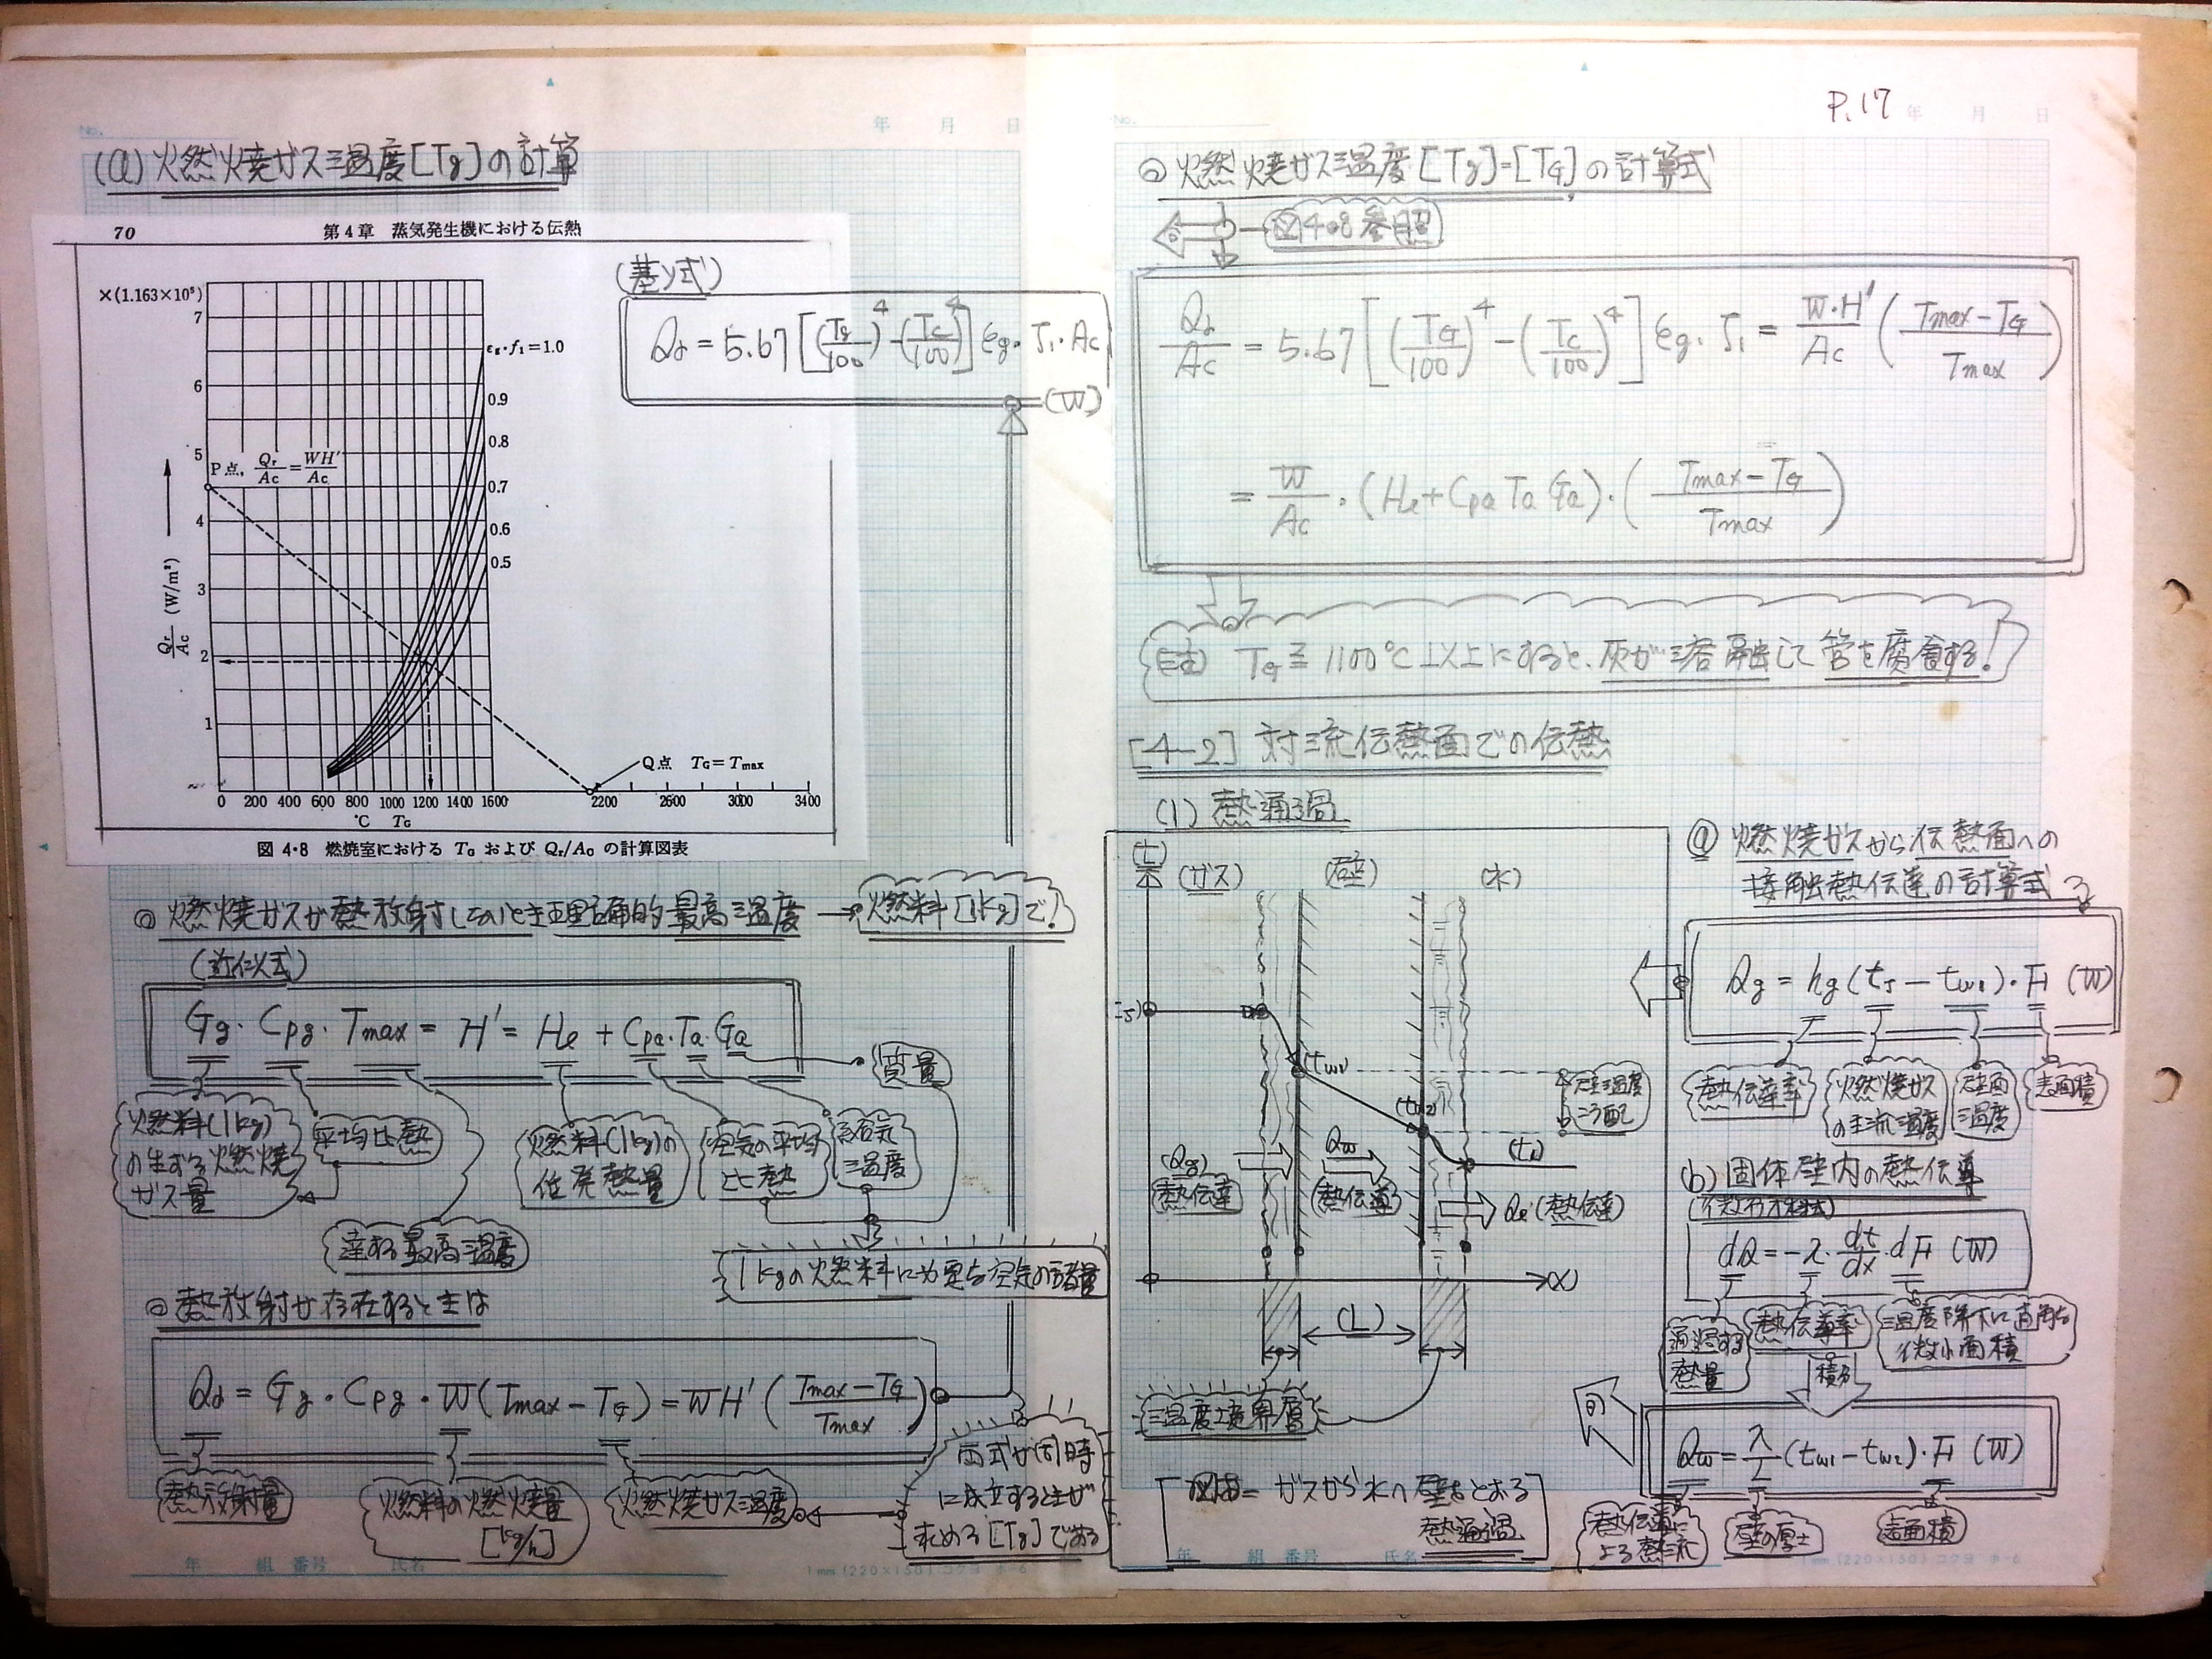 (a) 燃焼ガス温度[Tg]の計算
70 第4章 蒸気発生機における伝熱
×(1.163×10⁵)
7
6
5
4
3
2
1
εg・f₁=1.0
0.9
0.8
0.7
0.6
0.5
P点, Qr/Ac = WH'/Ac
Qr/Ac (W/m²)
Q点 TG=Tmax
0 200 400 600 800 1000 1200 1400 1600 2200 2600 3000 3400
℃ TG
図 4・8 燃焼室における TG および Qr/AG の計算図表
(基ソ式)
Qr = 5.67[(Tg/100)⁴-(Tc/100)⁴]εg・f₁・Ac
(W)
◎ 燃焼ガスが熱放射しないとき理論的最高温度→燃料[1kg]で!
(近似式)
Gg・Cpg・Tmax = H' = He + Cpa・Ta・Ga
質量
燃料(1kg)の生ずる燃焼ガス量
平均比熱
達する最高温度
燃料(1kg)の低発熱量
空気の平均比熱
空気温度
1kgの燃料に必要な空気の
◎ 熱放射が存在するときは
Qr = Gg・Cpg・W(Tmax-TG) = WH'(Tmax-TG/Tmax)
熱放射量
燃料の燃焼量[kg/h]
燃焼ガス温度
両式が同時に成立するときが求める[Tg]である
年 組 番号 氏名
P.17
年 月 日
◎ 燃焼ガス温度[Tg]=[TG]の計算式
図4・8参照
Qr/Ac = 5.67[(TG/100)⁴-(Tc/100)⁴]εg・f₁ = W・H'/Ac(Tmax-TG/Tmax)
= W/Ac・(He+Cpa Ta Ga)・(Tmax-TG/Tmax)
(注) TG≧1100℃以上にすると、灰が溶融して管を腐食する!
[4-2] 対流伝熱面での伝熱
(1) 熱通過
(t)
(ガス) (壁) (水)
(tw1)
(tw2)
壁温度こう配
(Qg)
熱伝達
Qw
(熱伝導)
(熱伝達)
(x)
(L)
温度境界層
ガスから水へ壁をとおる熱通過
ⓐ 燃焼ガスから伝熱面への接触熱伝達の計算式
Qg = hg(ts-tw1)・F (W)
熱伝達率
燃焼ガスの主流温度
壁面温度
表面積
(b) 固体壁内の熱伝導
(微分方程式)
dQ=-λ・dt/dx・dF (W)
通過する熱量
熱伝導率
温度降下に直角な微小面積
積分
Qw=λ/L(tw1-tw2)・F (W)
熱伝導による熱流
壁の厚さ
表面積
年 組 番号 氏名